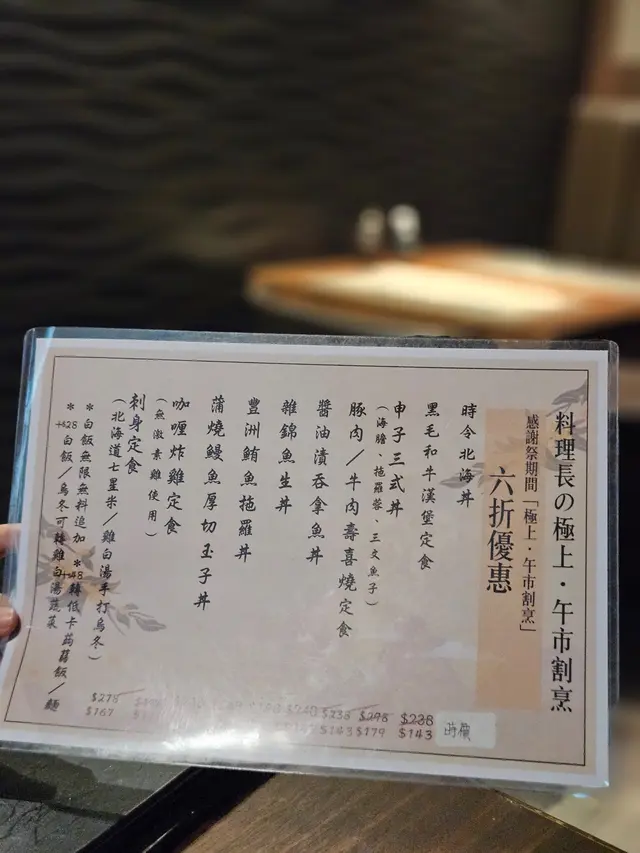 料理長の極上・午市割烹
感謝祭期間「極上・午市割烹」
六折優惠
時令北海丼
時價
黑毛和牛漢堡定食
$238
$143
申子三式丼
(海膽、拖羅蓉、三文魚子)
$298
$179
豚肉／牛肉壽喜燒定食
$238
$143
醬油漬吞拿魚丼
雜錦魚生丼
豐洲鮪魚拖羅丼
蒲燒鰻魚厚切玉子丼
咖喱炸雞定食
(無激素雞使用)
刺身定食
(北海道七星米／雞白湯手打烏冬)
$278
$167
＊白飯無限無料追加 ＊+$48轉低卡蒟蒻飯／麵
＊+$28白飯／烏冬可轉雞白湯蔬菜